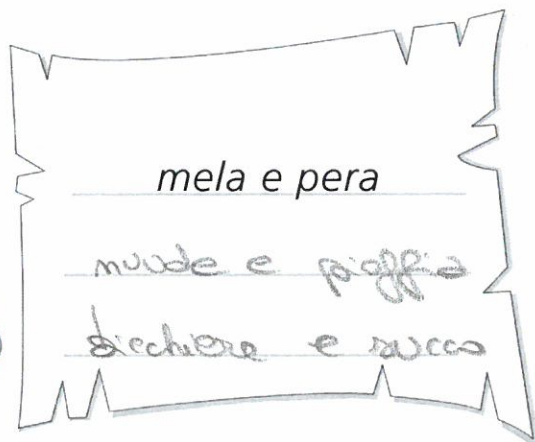 mela e pera
nuvole e pioggia
bicchiere e succo